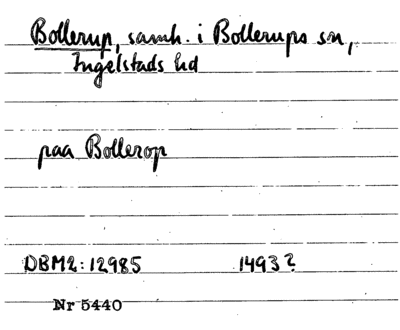 Bollerup, samh. i Bollerups sn,
Ingelstads hd
paa Bollerop
DBM2:12985 1493?
Nr 5440